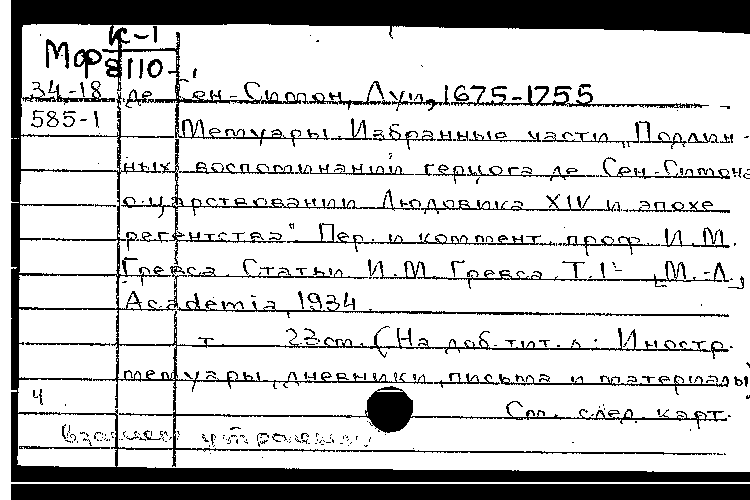 К-1
Мор 8110-
34-18 де Сен-Симон, Луи, 1675-1755
585-1 Мемуары. Избранные части „Подлин-
ных воспоминаний герцога де Сен-Симона
о царствовании Людовика XIV и эпохе
регентства". Пер. и коммент. проф. И.М.
Гревса. Статьи И.М. Гревса. Т.1- [М.-Л.],
Academia, 1934.
т. 23см. (На доб. тит. л.: Иностр.
мемуары, дневники, письма и материалы)
4 См. след. карт.
взамен утраченн